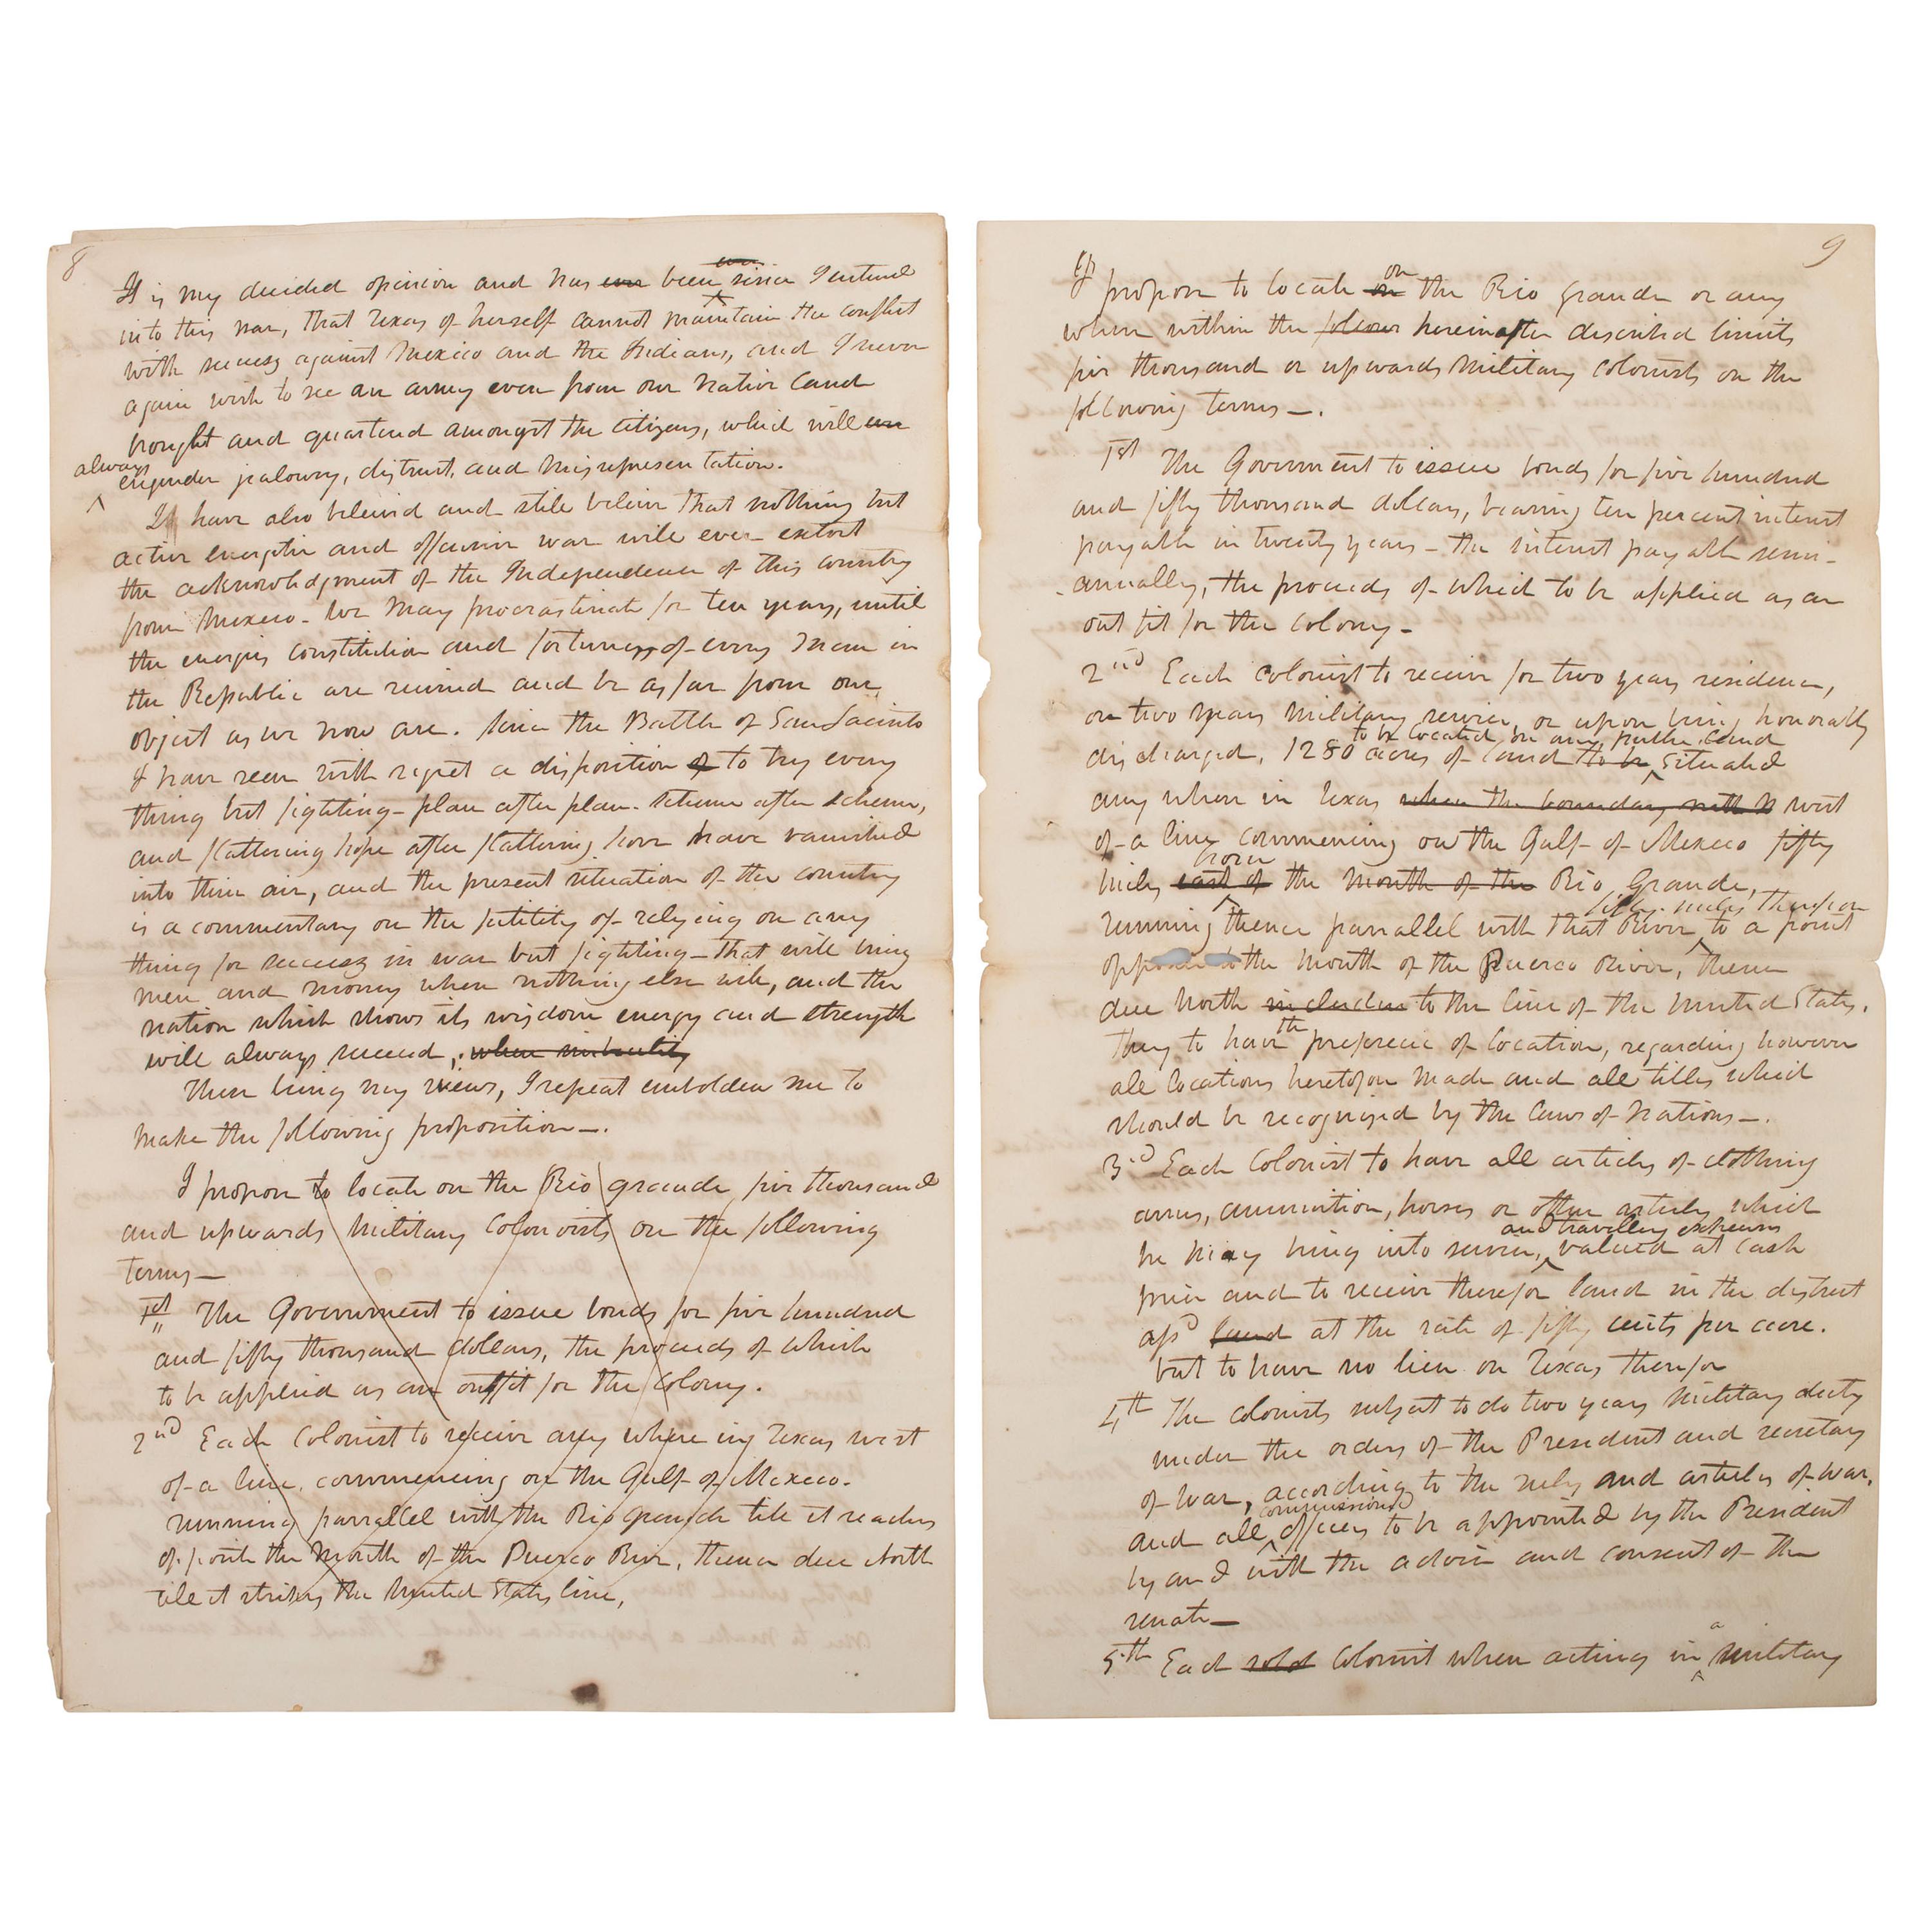 8
It is my decided opinion and has ever been ever since I entered
into this war, that Texas of herself cannot maintain the conflict
with success against Mexico and the Indians, and I never
again wish to see an army even from our native land
brought and quartered amongst the citizens, which will ever
always engender jealousy, distrust, and misrepresentation.
I have also beleivd and still beleive that nothing but
active energetic and offensive war will ever extort
the acknowledgment of the Independence of this country
from Mexico. We may procrastinate for ten years, until
the energies constitution and fortunes of every man in
the Republic are ruined and be as far from our
object as we now are. Since the Battle of San Jacinto
I have seen with regret a disposition of to try every
thing but fighting - plan after plan. Scheme after scheme,
and flattering hope after flattering hope have vanished
into thin air, and the present situation of the country
is a commentary on the futility of relying on any
thing for success in war but fighting - that will bring
men and money when nothing else will, and the
nation which shows its wisdom energy and strength
will always succeed, when
These being my views, I repeat embolden me to
make the following proposition -.
I propose to locate on the Rio grande five thousand
and upwards military colonists on the following
terms -
1st The Government to issue bonds for five hundred
and fifty thousand dollars, the proceeds of which
to be applied as an outfit for the colony.
2nd Each Colonist to receive any where in Texas west
of a line, commencing on the Gulf of Mexico.
running parrallel with the Rio grande till it reaches
opposite the mouth of the Puerco River, thence due North
till it strikes the United States line,
9
I propose to locate on on the Rio Grande or any
where within the follows hereinafter described limits
five thousand or upwards military colonists on the
following terms -.
1st The Government to issue bonds for five hundred
and fifty thousand dollars, bearing ten percent interest
payable in twenty years - the interest payable semi-
-annually, the proceeds of which to be applied as an
out fit for the colony -
2nd Each colonist to receive for two years residence,
or two years military service, or upon being honorably
discharged, 1280 acres of land to be to be located on any public land situated
any where in Texas when the boundary west
of a line commencing on the Gulf of Mexico fifty
miles east of from the mouth of the Rio Grande,
running thence parrallel with that River fifty miles therefrom to a point
opposite to the mouth of the Puerco River, thence
due North to the line of the United States.
They to have the preference of location, regarding however
all locations heretofore made and all titles which
should be recognized by the laws of nations -.
3rd Each Colonist to have all articles of clothing
arms, ammunition, horses or other articles which
he may bring into service, and travelling expenses valued at cash
price and to receive therefor land in the district
afsd land at the rate of fifty cents per acre.
but to have no lien on Texas therefor
4th The colonists subject to do two years military duty
under the orders of the President and secretary
of war, according to the rules and articles of war,
and all commissioned officers to be appointed by the President
by and with the advice and consent of the
senate -
5th Each Colonist when acting in a military